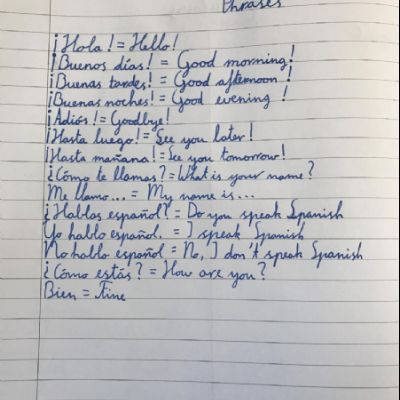 Phrases
¡Hola! = Hello!
¡Buenos días! = Good morning!
¡Buenas tardes! = Good afternoon!
¡Buenas noches! = Good evening!
¡Adiós! = Goodbye!
¡Hasta luego! = See you later!
¡Hasta mañana! = See you tomorrow!
¿Cómo te llamas? = What is your name?
Me llamo... = My name is...
¿Hablas español? = Do you speak Spanish
Yo hablo español. = I speak Spanish
No hablo español = No, I don't speak Spanish
¿Cómo estás? = How are you?
Bien = Fine